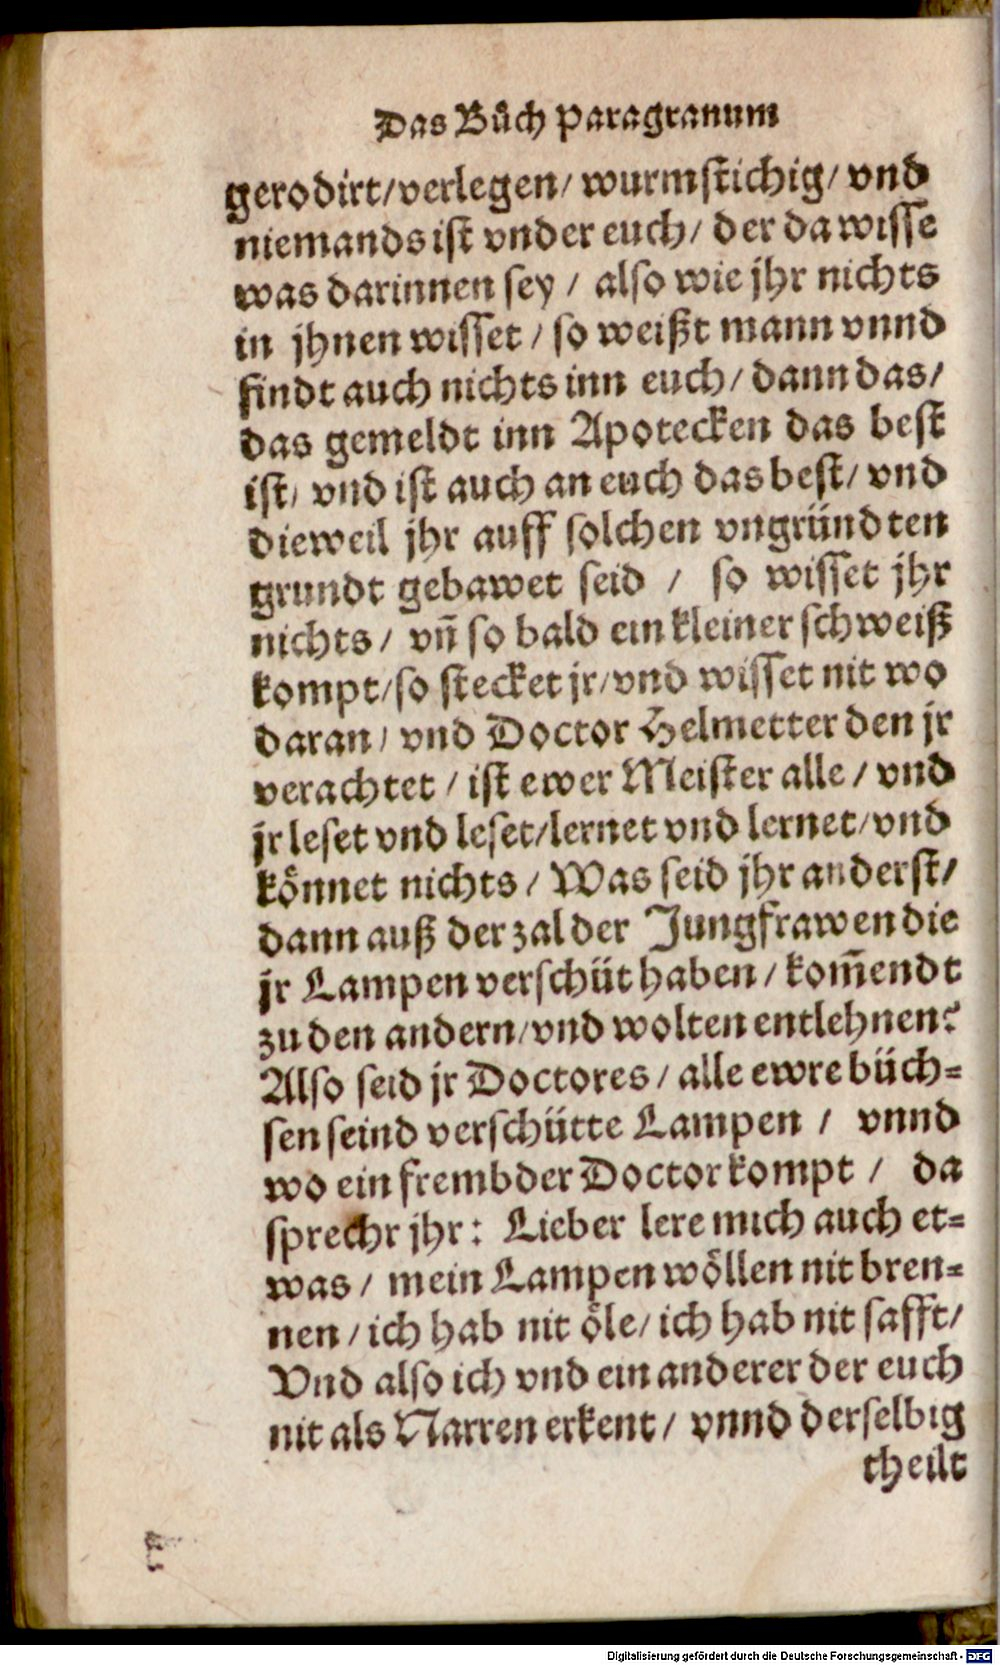 Das Bůch Paragranum
gerodirt/verlegen/ wurmstichig/ vnd
niemands ist vnder euch/ der da wisse
was darinnen sey / also wie jhr nichts
in jhnen wisset / so weißt mann vnnd
findt auch nichts inn euch/ dann das/
das gemeldt inn Apotecken das best
ist/ vnd ist auch an euch das best/ vnd
dieweil jhr auff solchen vngründten
grundt gebawet seid / so wisset jhr
nichts / vñ so bald ein kleiner schweiß
kompt/so stecket jr/vnd wisset nit wo
daran/ vnd Doctor Helmetter den jr
verachtet / ist ewer Meister alle / vnd
jr leset vnd leset/lernet vnd lernet/vnd
könnet nichts / Was seid jhr anderst/
dann auß der zal der Jungfrawen die
jr Lampen verschüt haben / kom̃endt
zu den andern/vnd wolten entlehnen?
Also seid jr Doctores / alle ewre büch-
sen seind verschütte Lampen / vnnd
wo ein frembder Doctor kompt / da
sprechr jhr: Lieber lere mich auch et-
was / mein Lampen wöllen nit bren-
nen / ich hab nit öle/ ich hab nit safft/
Vnd also ich vnd ein anderer der euch
nit als Narren erkent / vnnd derselbig
theilt
Digitalisierung gefördert durch die Deutsche Forschungsgemeinschaft - DFG